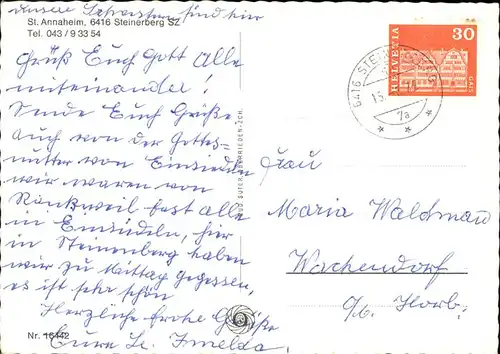 unsere Schwestern sind hier
St. Annaheim, 6416 Steinerberg SZ
Tel. 043 / 9 33 54
Grüß Euch Gott Alle
miteinander!
Sende Euch Grüße
auch von der Gottes-
mutter von Einsiedeln
wir waren von
Rankweil fast alle
in Einsiedeln, hier
in Steinerberg haben
wir zu Mittag gegessen,
es ist sehr schön
Herzliche frohe Grüße
Eure Sr. Imelda
Nr. 16442
HELVETIA
30
GAIS
6416 STEINERBERG
15.
1a
Frau
Maria Waldmann
Wachendorf
Horb.